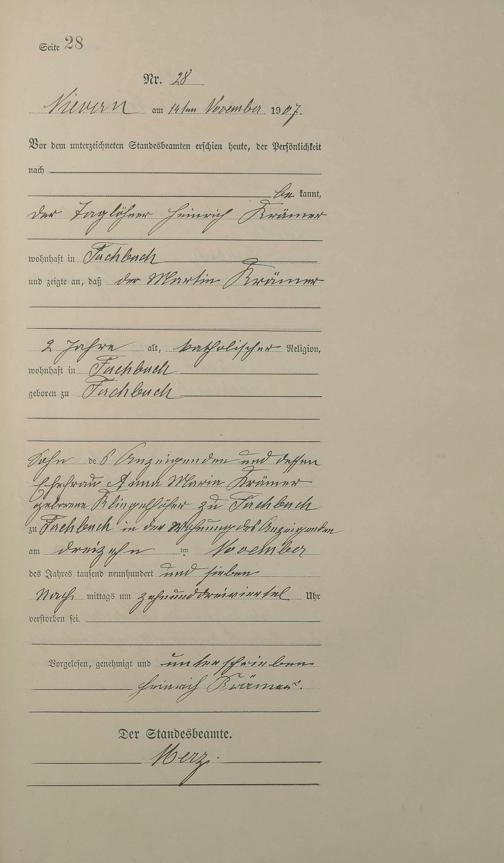 Seite 28
Nr. 28
Nievern am 14ten November 1907.
Vor dem unterzeichneten Standesbeamten erschien heute, der Persönlichkeit
nach
be kannt,
der Taglöhner Heinrich Krämer
wohnhaft in Fachbach
und zeigte an, daß der Martin Krämer
2 Jahre alt, katholischer Religion,
wohnhaft in Fachbach
geboren zu Fachbach
Sohn des Anzeigenden und dessen
Ehefrau Anna Maria Krämer
geborene Klingelhöfer zu Fachbach
zu Fachbach in der Wohnung des Anzeigenden
am dreizehn im November
des Jahres tausend neunhundert und sieben
Nach mittags um zehnunddreiviertel Uhr
verstorben sei.
Vorgelesen, genehmigt und unterschrieben
Heinrich Krämer.
Der Standesbeamte.
Merz.